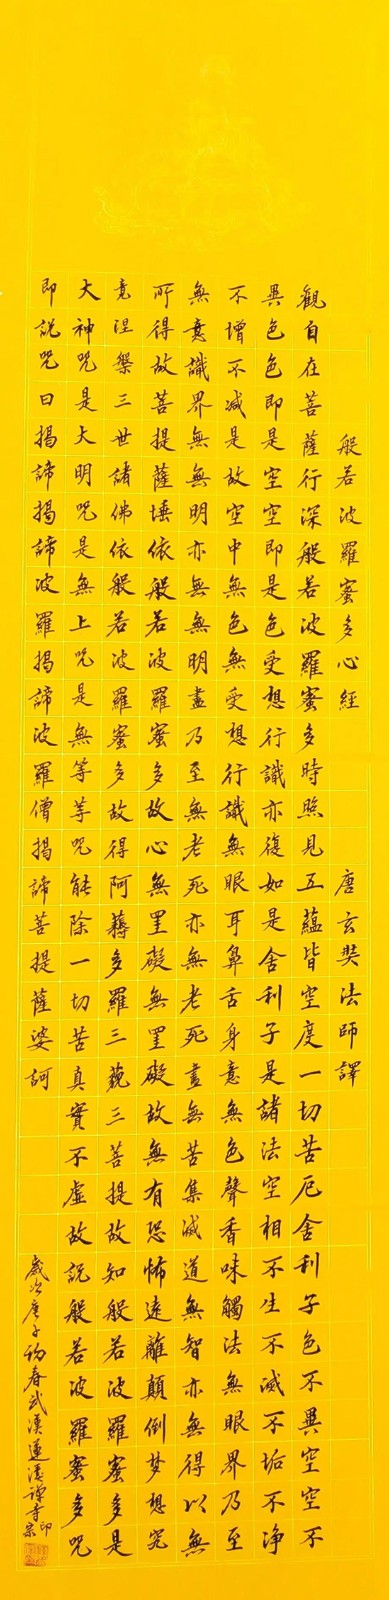 般若波羅蜜多心經 唐玄奘法師譯
觀自在菩薩行深般若波羅蜜多時照見五蘊皆空度一切苦厄舍利子色不異空空不
異色色即是空空即是色受想行識亦復如是舍利子是諸法空相不生不滅不垢不淨
不增不減是故空中無色無受想行識無眼耳鼻舌身意無色聲香味觸法無眼界乃至
無意識界無無明亦無無明盡乃至無老死亦無老死盡無苦集滅道無智亦無得以無
所得故菩提薩埵依般若波羅蜜多故心無罣礙無罣礙故無有恐怖遠離顛倒梦想究
竟涅槃三世諸佛依般若波羅蜜多故得阿耨多羅三藐三菩提故知般若波羅蜜多是
大神咒是大明咒是無上咒是無等等咒能除一切苦真實不虛故說般若波羅蜜多咒
即說咒曰揭諦揭諦波羅揭諦波羅僧揭諦菩提薩婆訶
歲次庚子初春武漢蓮溪禪寺宗印